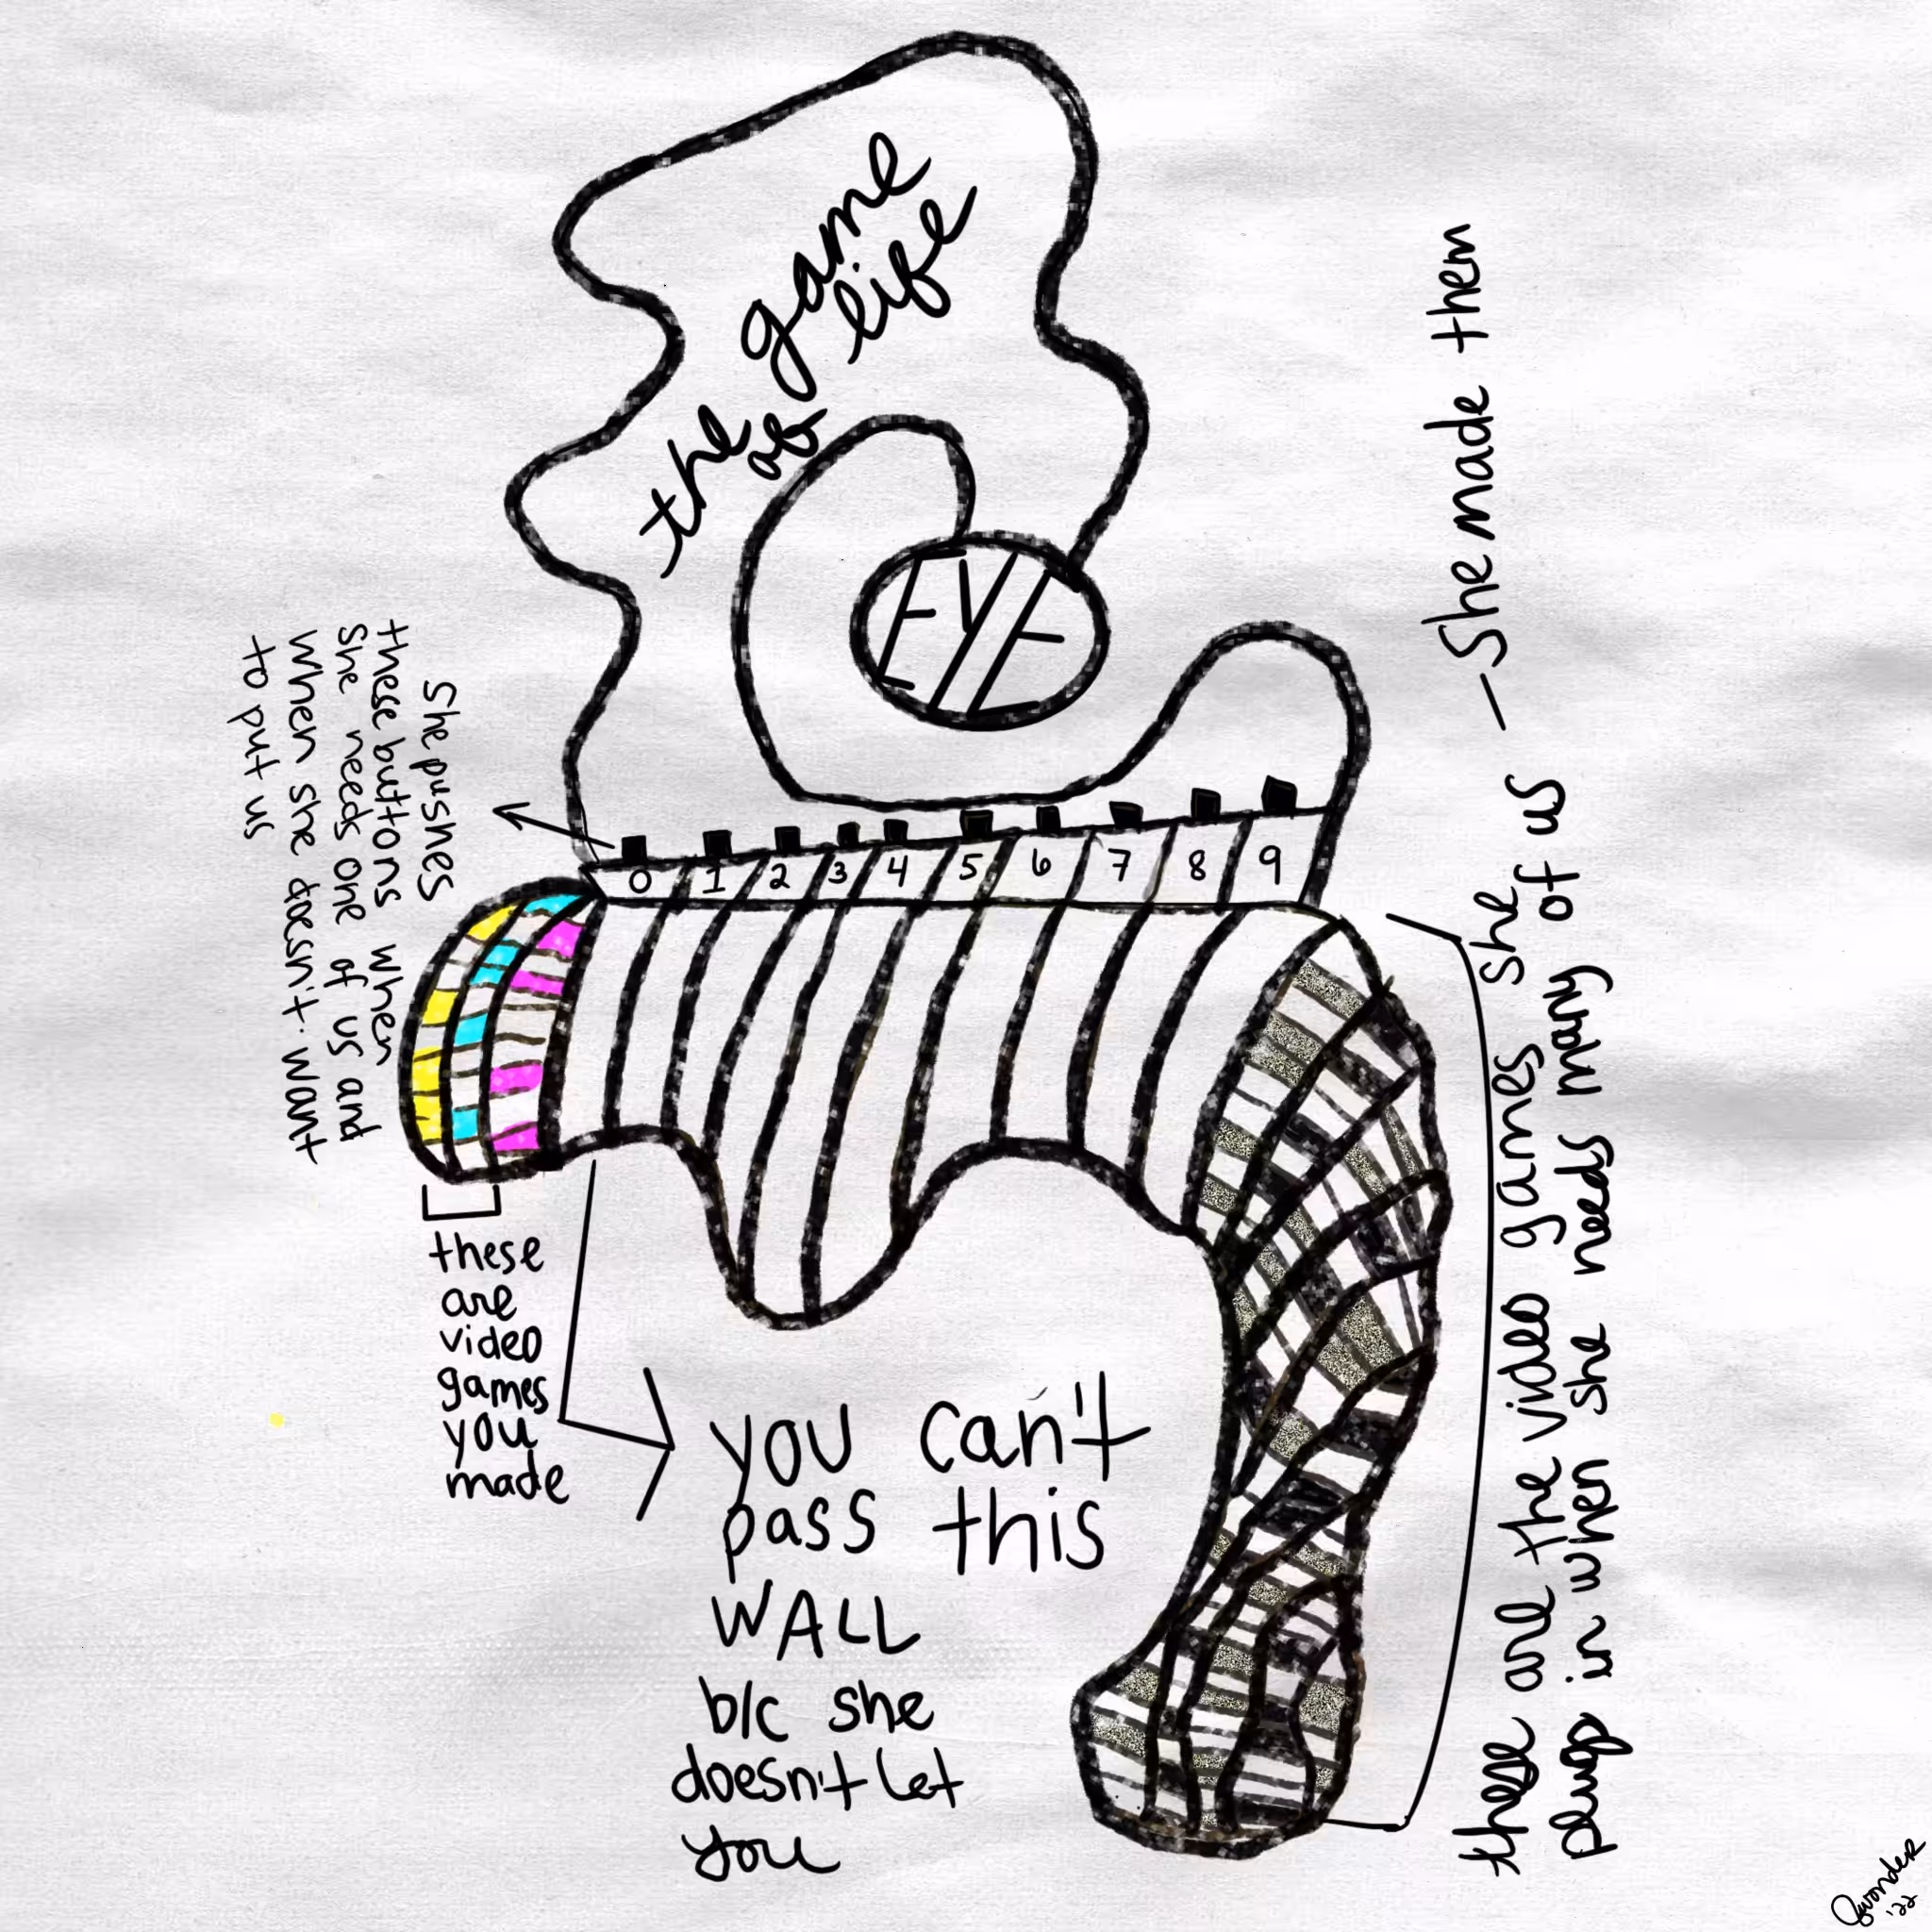 the game
of life
EYE
0 1 2 3 4 5 6 7 8 9
She pushes
these buttons when
She needs one of us and
When she doesn't want
to put us
these
are
video
games
you
made
you can't
pass this
WALL
b/c she
doesn't let
you
these are the video games she
plugs in when she needs many of us
— She made them
Jwonder
'22